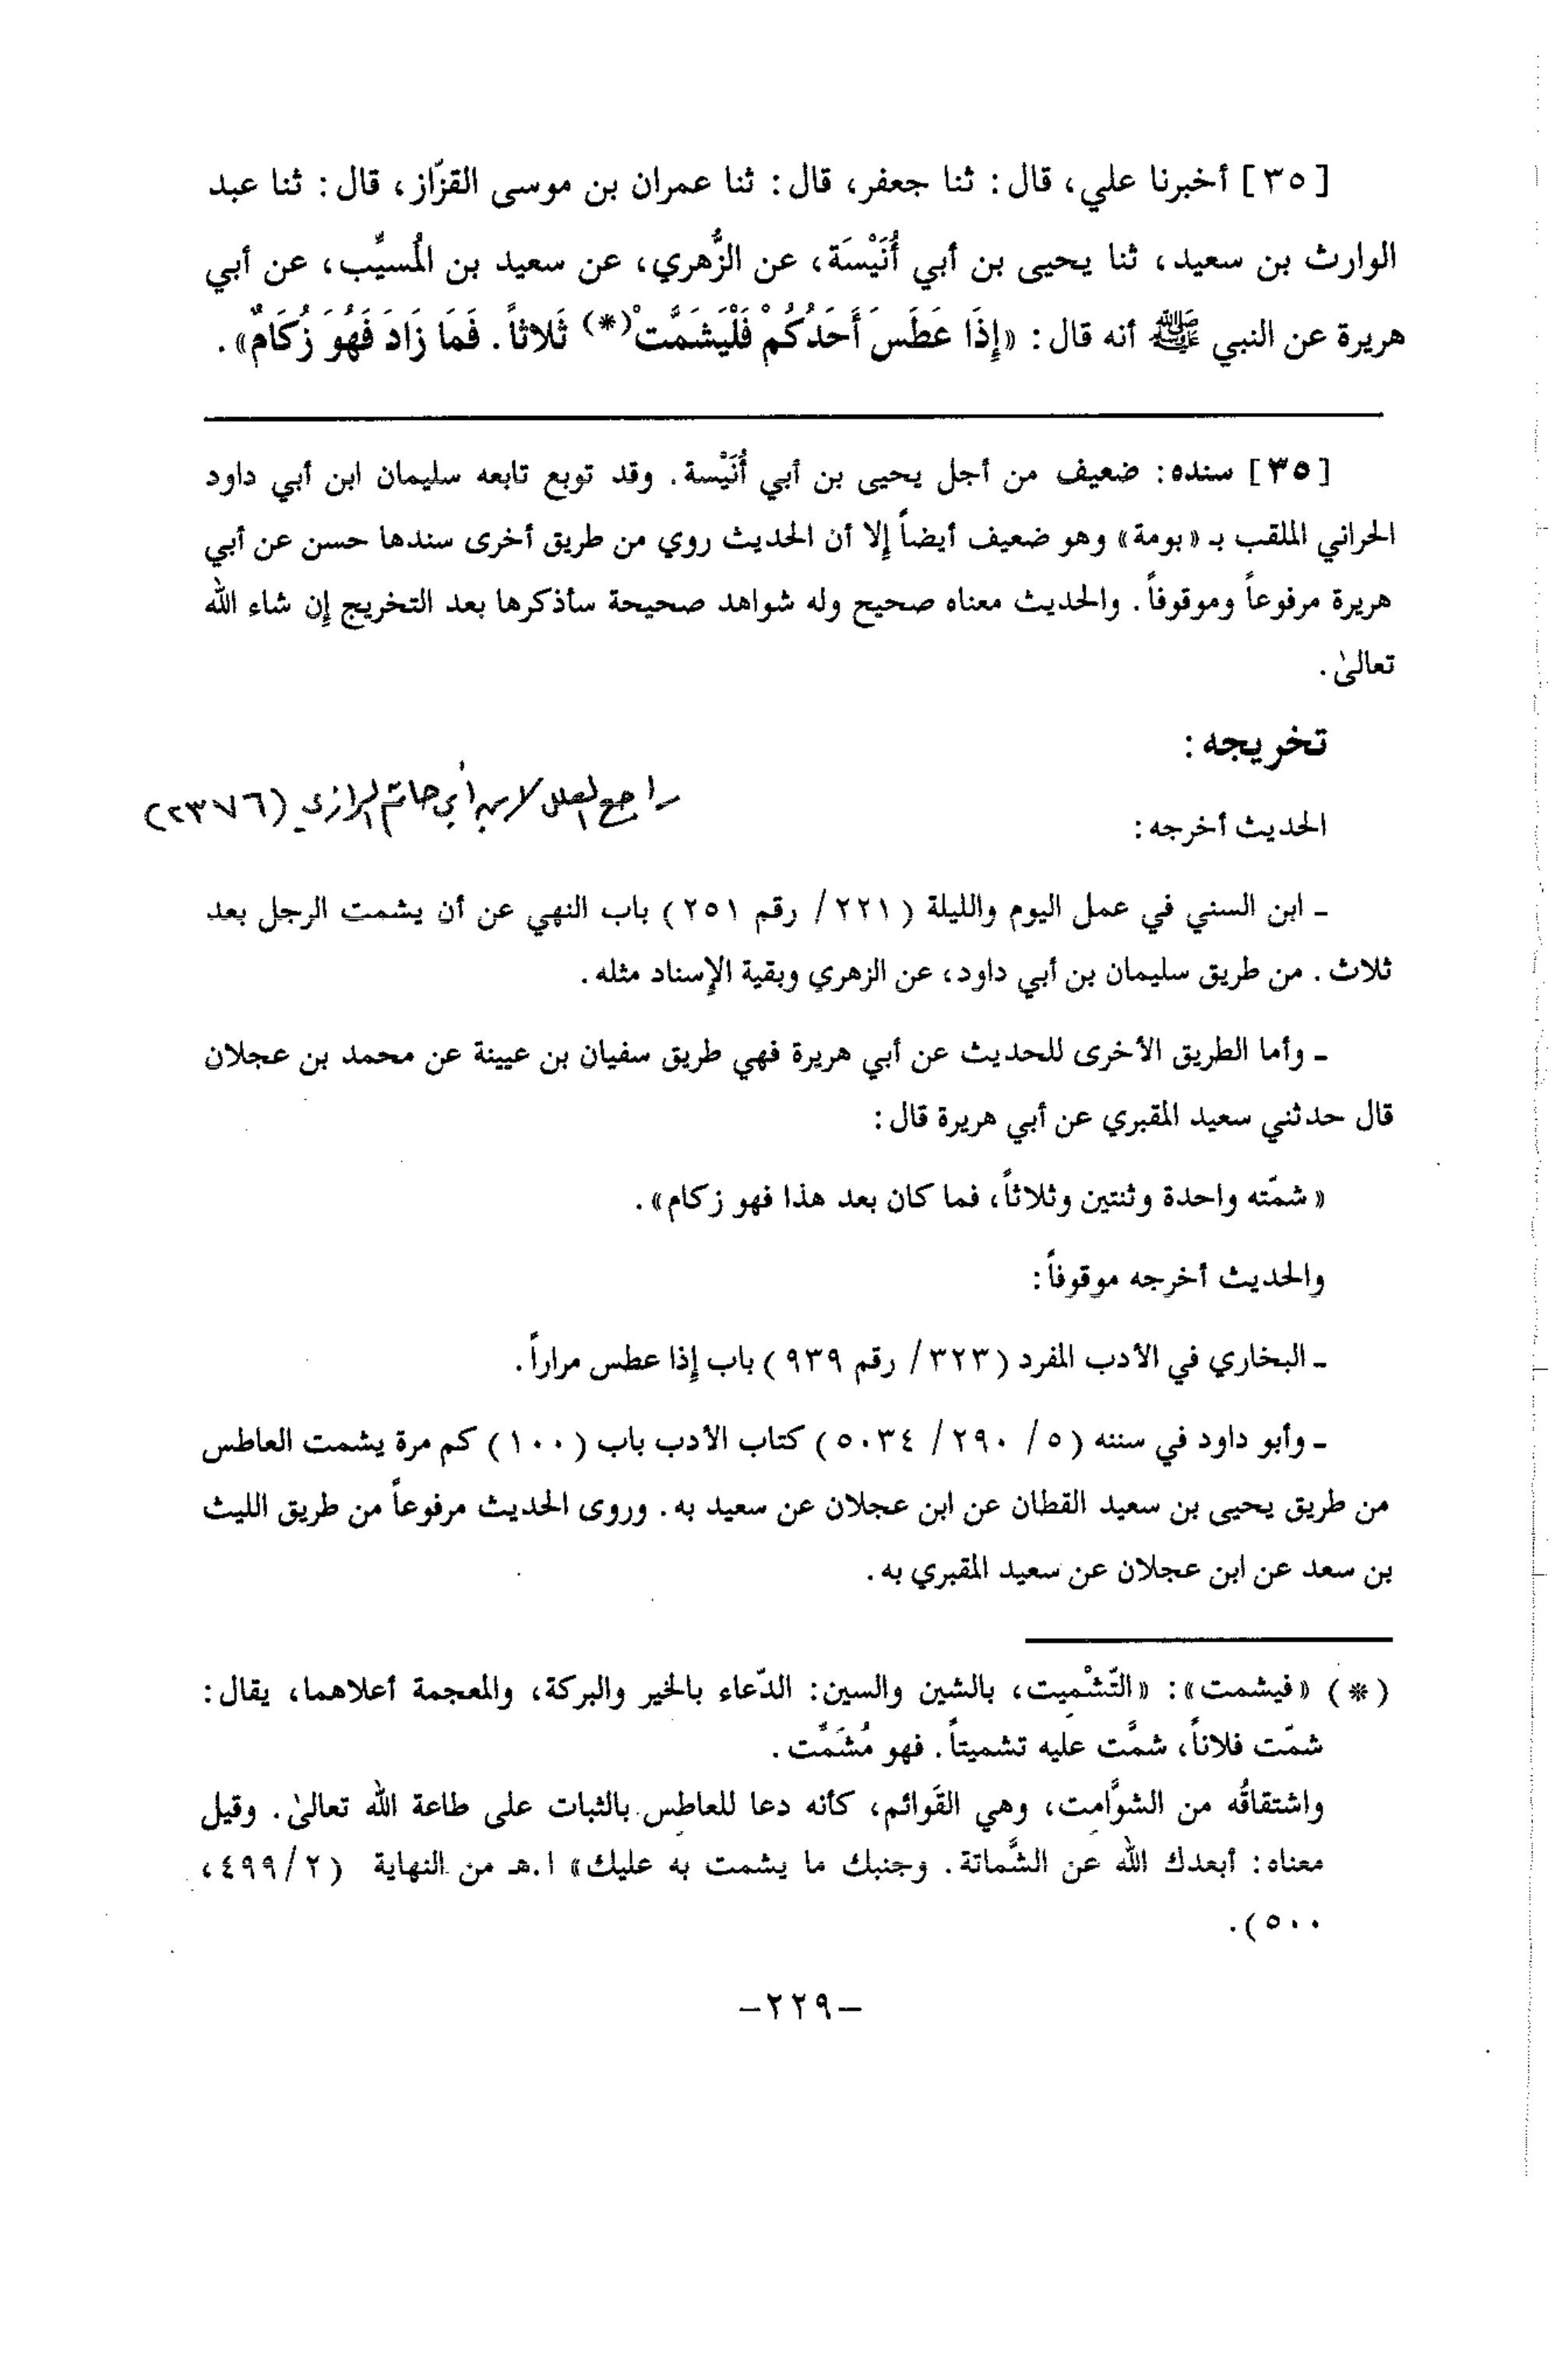 [٣٥] أخبرنا علي، قال: ثنا جعفر، قال: ثنا عمران بن موسى القزّاز، قال: ثنا عبد
الوارث بن سعيد، ثنا يحيى بن أبي أُنَيْسَة، عن الزُّهري، عن سعيد بن المُسيَّب، عن أبي
هريرة عن النبي ﷺ أنه قال: «إِذَا عَطَسَ أَحَدُكُمْ فَلْيُشَمَّتْ(*) ثَلاثاً. فَمَا زَادَ فَهُوَ زُكَامٌ».
[٣٥] سنده: ضعيف من أجل يحيى بن أبي أُنَيْسة. وقد توبع تابعه سليمان ابن أبي داود
الحراني الملقب بـ «بومة» وهو ضعيف أيضاً إلا أن الحديث روي من طريق أخرى سندها حسن عن أبي
هريرة مرفوعاً وموقوفاً. والحديث معناه صحيح وله شواهد صحيحة سأذكرها بعد التخريج إن شاء الله
تعالىٰ.
تخريجه:
راجع العلل لابن أبي حاتم الرازي (٢٣٧٦)
الحديث أخرجه:
ـ ابن السني في عمل اليوم والليلة (٢٢١/ رقم ٢٥١) باب النهي عن أن يشمت الرجل بعد
ثلاث. من طريق سليمان بن أبي داود، عن الزهري وبقية الإسناد مثله.
ـ وأما الطريق الأخرى للحديث عن أبي هريرة فهي طريق سفيان بن عيينة عن محمد بن عجلان
قال حدثني سعيد المقبري عن أبي هريرة قال:
«شمّته واحدة وثنتين وثلاثاً، فما كان بعد هذا فهو زكام».
والحديث أخرجه موقوفاً:
ـ البخاري في الأدب المفرد (٣٢٣/ رقم ٩٣٩) باب إذا عطس مراراً.
ـ وأبو داود في سننه (٥/ ٢٩٠/ ٥٠٣٤) كتاب الأدب باب (١٠٠) كم مرة يشمت العاطس
من طريق يحيى بن سعيد القطان عن ابن عجلان عن سعيد به. وروى الحديث مرفوعاً من طريق الليث
بن سعد عن ابن عجلان عن سعيد المقبري به.
(*) «فيشمت»: «التّشْمِيت، بالشين والسين: الدّعاء بالخير والبركة، والمعجمة أعلاهما، يقال:
شمّت فلاناً، شمَّت عليه تشميتاً. فهو مُشَمَّت.
واشتقاقُه من الشوَّامِت، وهي القَوائم، كأنه دعا للعاطِس بالثبات على طاعة الله تعالىٰ. وقيل
معناه: أبعدك الله عن الشَّماتة. وجنبك ما يشمت به عليك» ا.هـ من النهاية (٤٩٩/٢،
٥٠٠).
-٢٢٩-